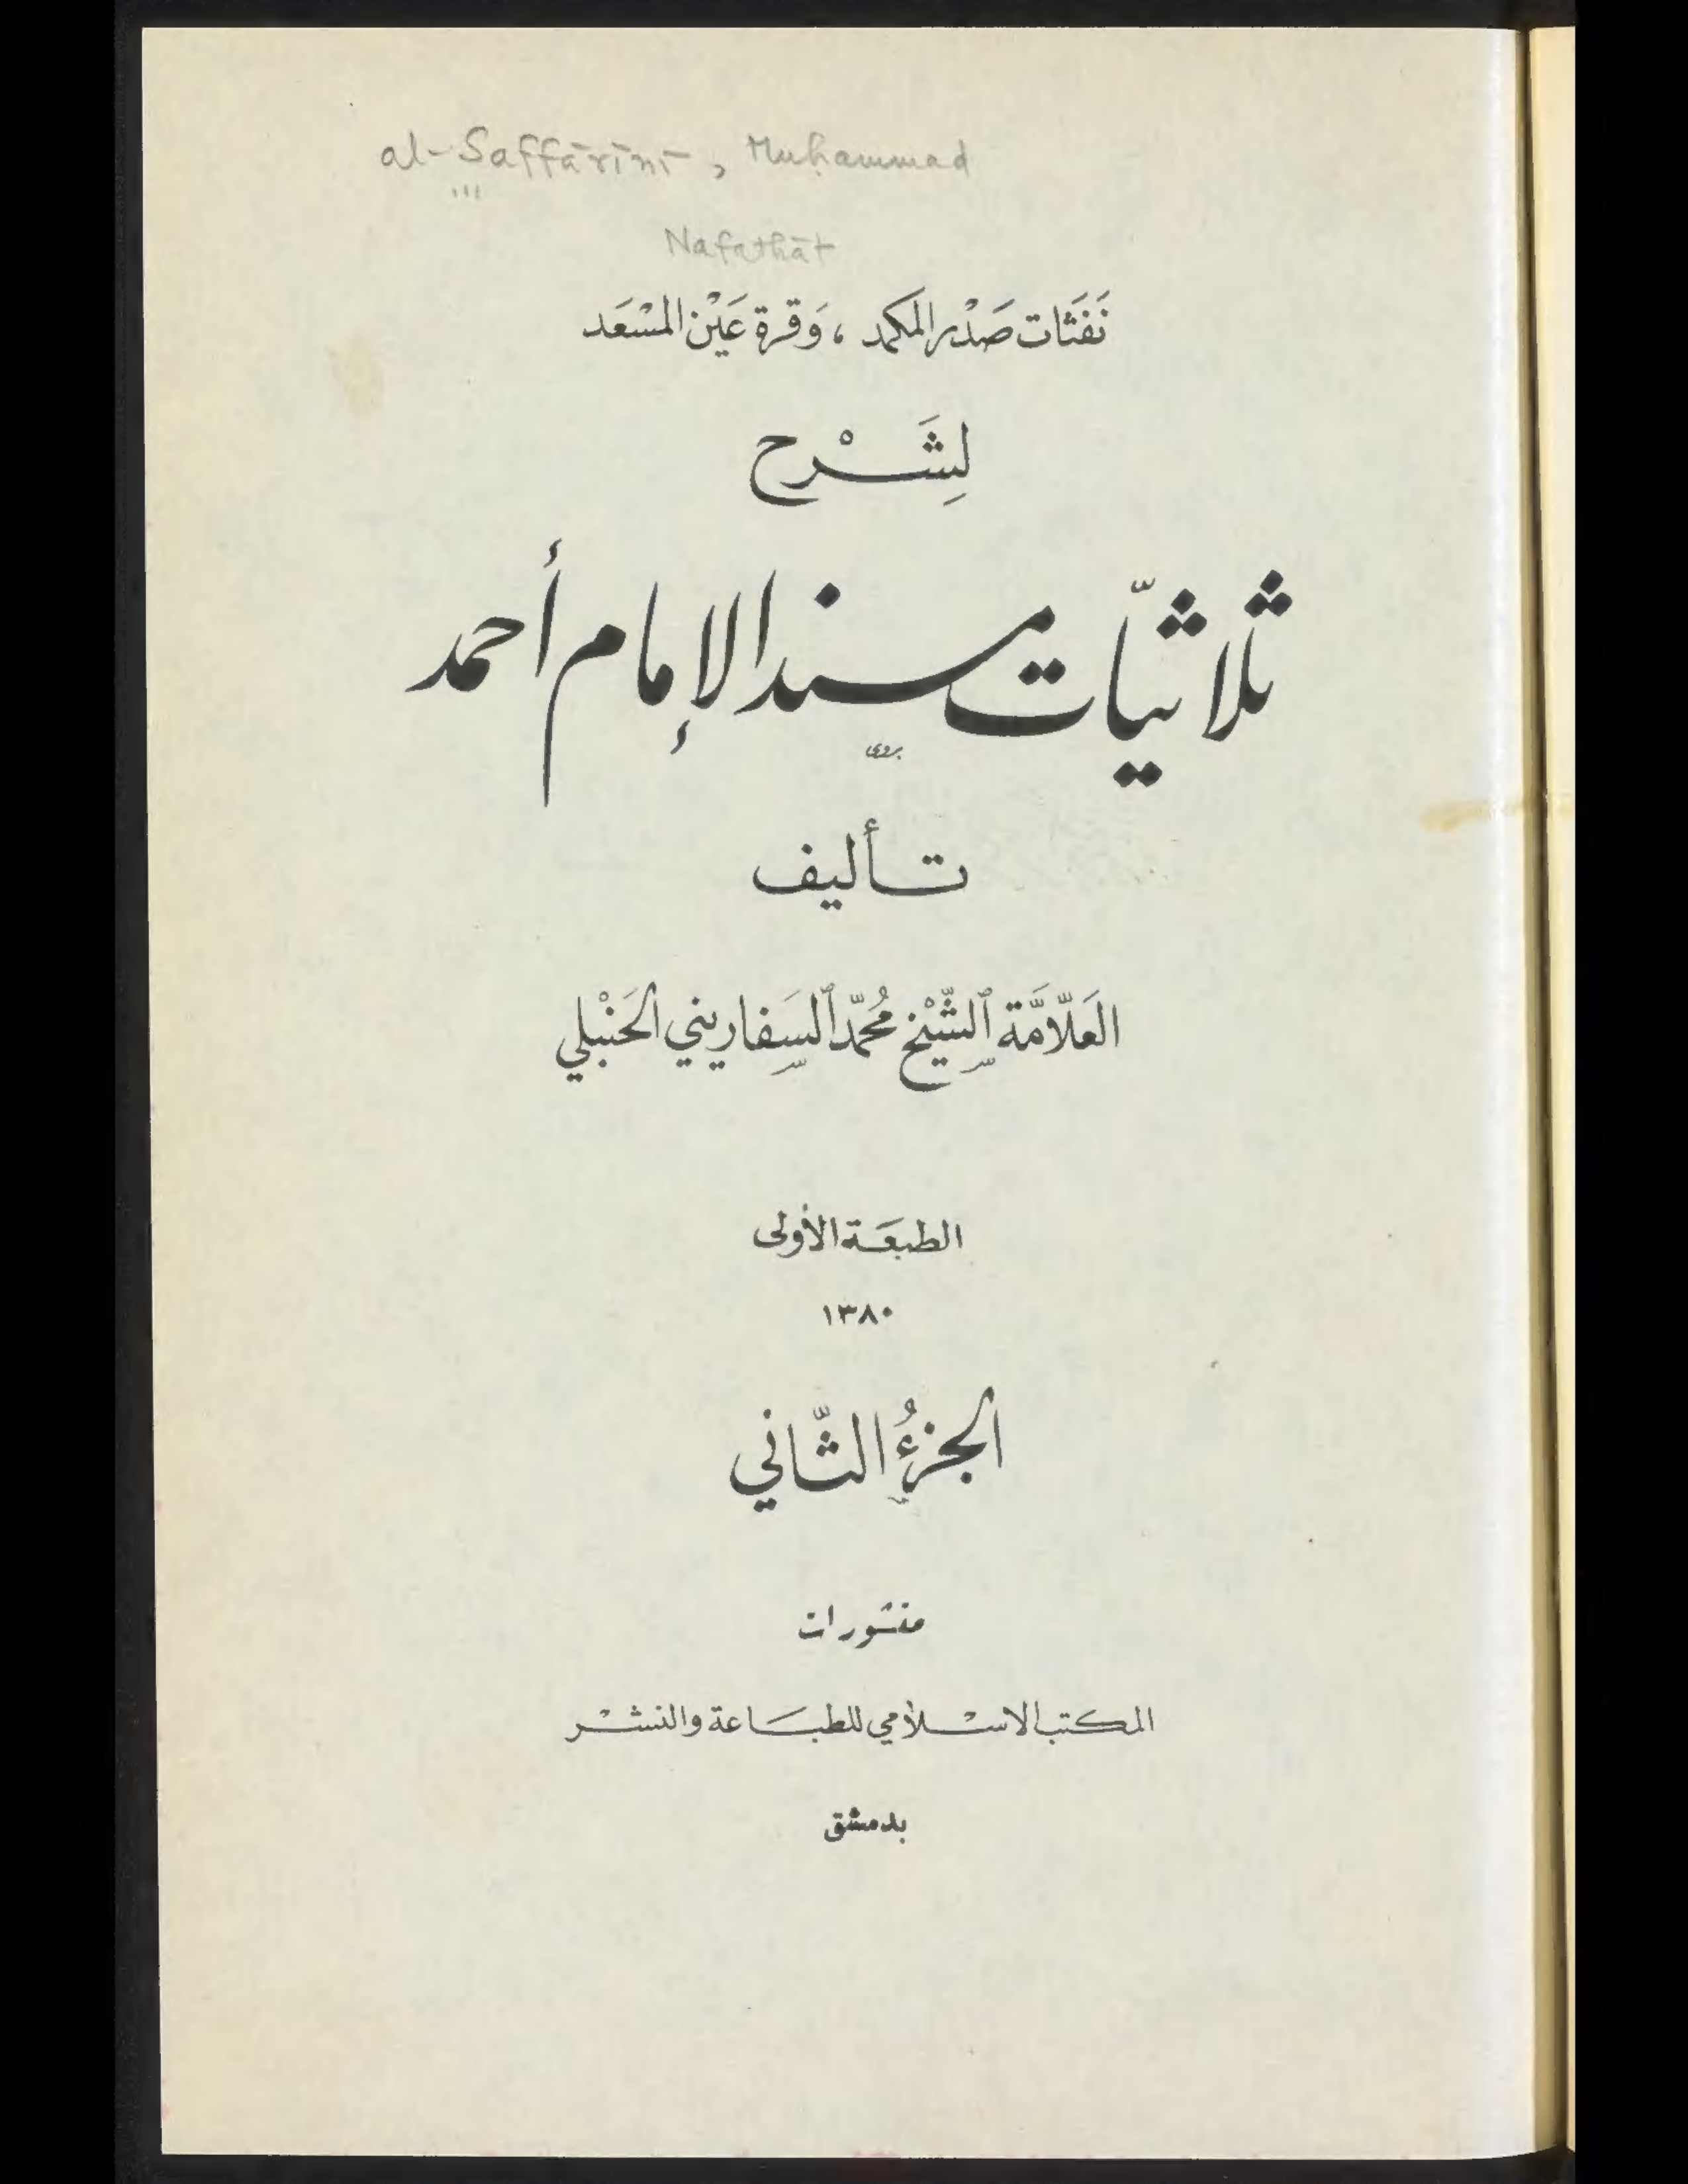 al-Saffārīnī, Muḥammad
Nafathāt
نَفَثَات صَدْر المكمد ، وَقرة عَيْن المسْعَد
لِشَرْح
ثلاثيّات مسند الإمام أحمد
تأليف
العَلاّمَّة ٱلشَّيْخ مُحمّد ٱلسَفاريني الحَنْبلي
الطبعَة الأولى
١٣٨٠
الجزءُ الثّاني
منشورات
المكتب الاسْلامي للطبَاعة والنشْر
بدمشق